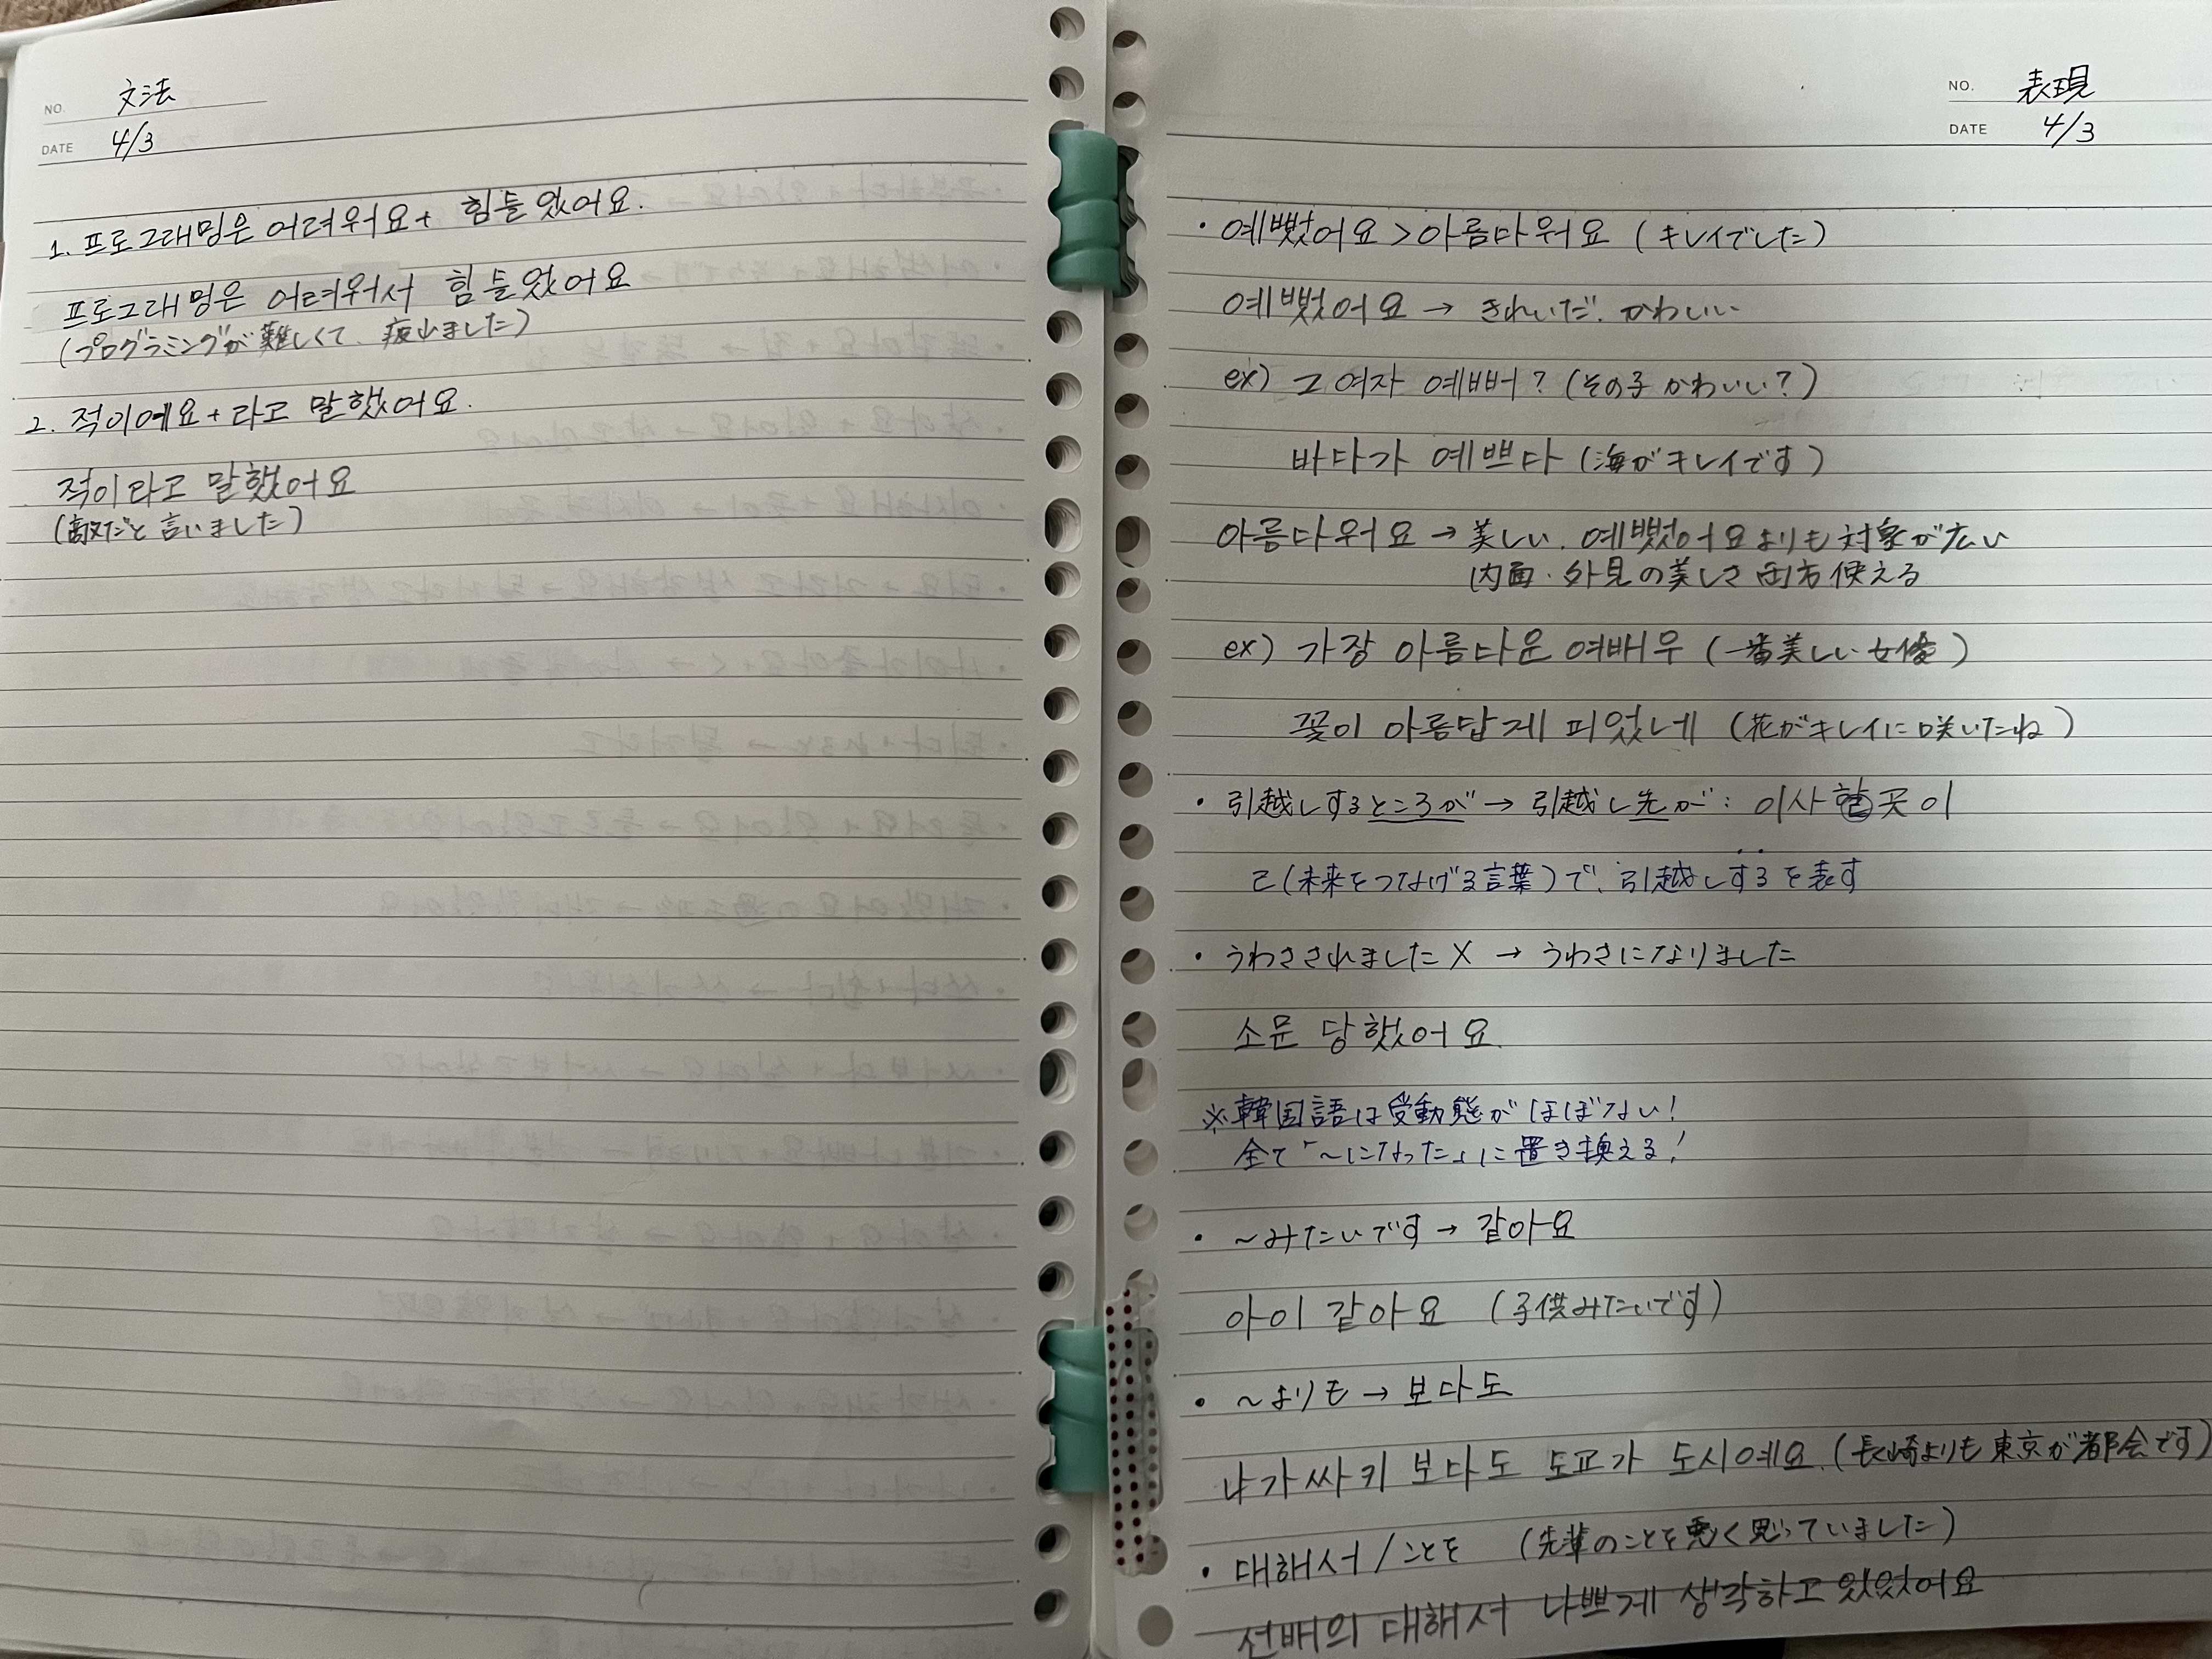 NO. 文法
DATE 4/3
1. 프로그래밍은 어려워요+ 힘들었어요.
프로그래밍은 어려워서 힘들었어요
(プログラミングが難しくて、疲れました)
2. 적이예요+라고 말했어요.
적이라고 말했어요
(敵だと言いました)
NO. 表現
DATE 4/3
・예뻤어요>아름다워요 (キレイでした)
예뻤어요→きれいだ、かわいい
ex) 그여자 예뻐? (その子かわいい?)
바다가 예쁘다 (海がキレイです)
아름다워요→美しい、예뻤어요よりも対象が広い
内面・外見の美しさ両方使える
ex) 가장 아름다운 여배우 (一番美しい女優)
꽃이 아름답게 피었네 (花がキレイに咲いたね)
・引越しするところが→引越し先が: 이사할곳이
ㄹ(未来をつなげる言葉)で、引越しするを表す
・うわさされました X → うわさになりました
소문 당했어요
※韓国語は受動態がほぼない!
全て「~になった」に置き換える!
・~みたいです→같아요
아이 같아요 (子供みたいです)
・~よりも→보다도
나가싸키 보다도 도쿄가 도시예요.(長崎よりも東京が都会です)
・대해서/ことを (先輩のことを悪く思っていました)
선배의 대해서 나쁘게 생각하고 있었어요